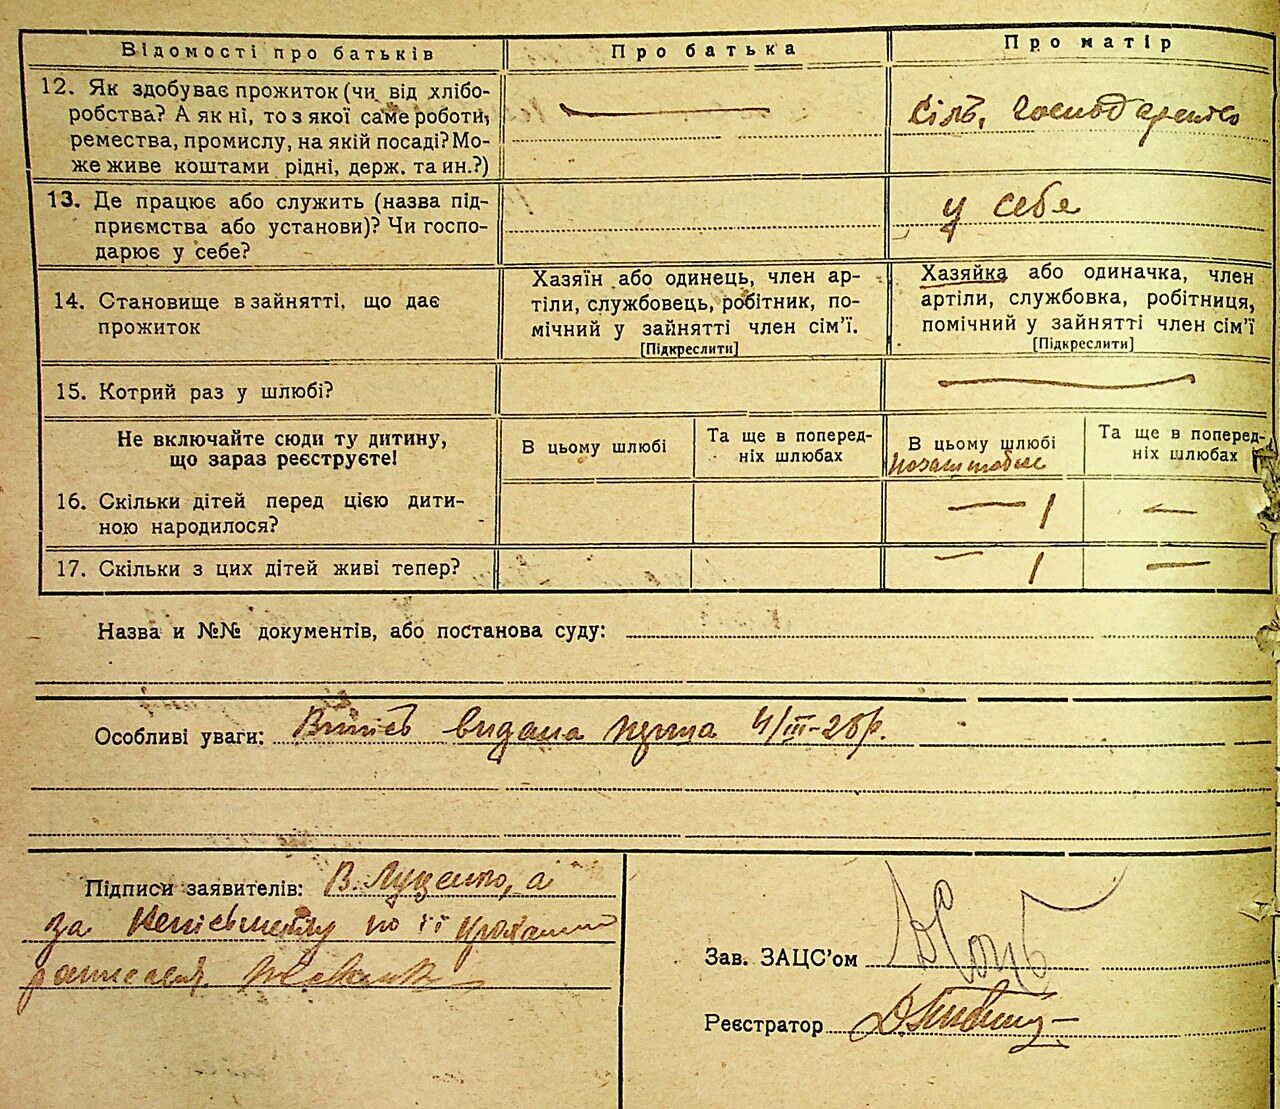 Відомості про батьків Про батька Про матір
12. Як здобуває прожиток (чи від хлібо-
робства? А як ні, то з якої саме роботи,
ремества, промислу, на якій посаді? Мо-
же живе коштами рідні, держ. та ин.?)
Сільь. господарство
13. Де працює або служить (назва під-
приємства або установи)? Чи госпо-
дарює у себе?
у себе
14. Становище в зайнятті, що дає
прожиток
Хазяїн або одинець, член ар-
тіли, службовець, робітник, по-
мічний у зайнятті член сім'ї.
[Підкреслити]
Хазяйка або одиначка, член
артіли, службовка, робітниця,
помічний у зайнятті член сім'ї
[Підкреслити]
15. Котрий раз у шлюбі?
Не включайте сюди ту дитину,
що зараз реєструєте!
В цьому шлюбі
Та ще в поперед-
ніх шлюбах
В цьому шлюбі
позашлюбне
Та ще в поперед-
ніх шлюбах
16. Скільки дітей перед цією дити-
ною народилося?
— 1 —
17. Скільки з цих дітей живі тепер? — 1 —
Назва и №№ документів, або постанова суду:
Особливі уваги: Випись видана перша 4/III-28р.
Підписи заявителів: В. Луценко, а
за неписьменну по її проханню
расписался
Зав. ЗАЦС'ом
Реєстратор